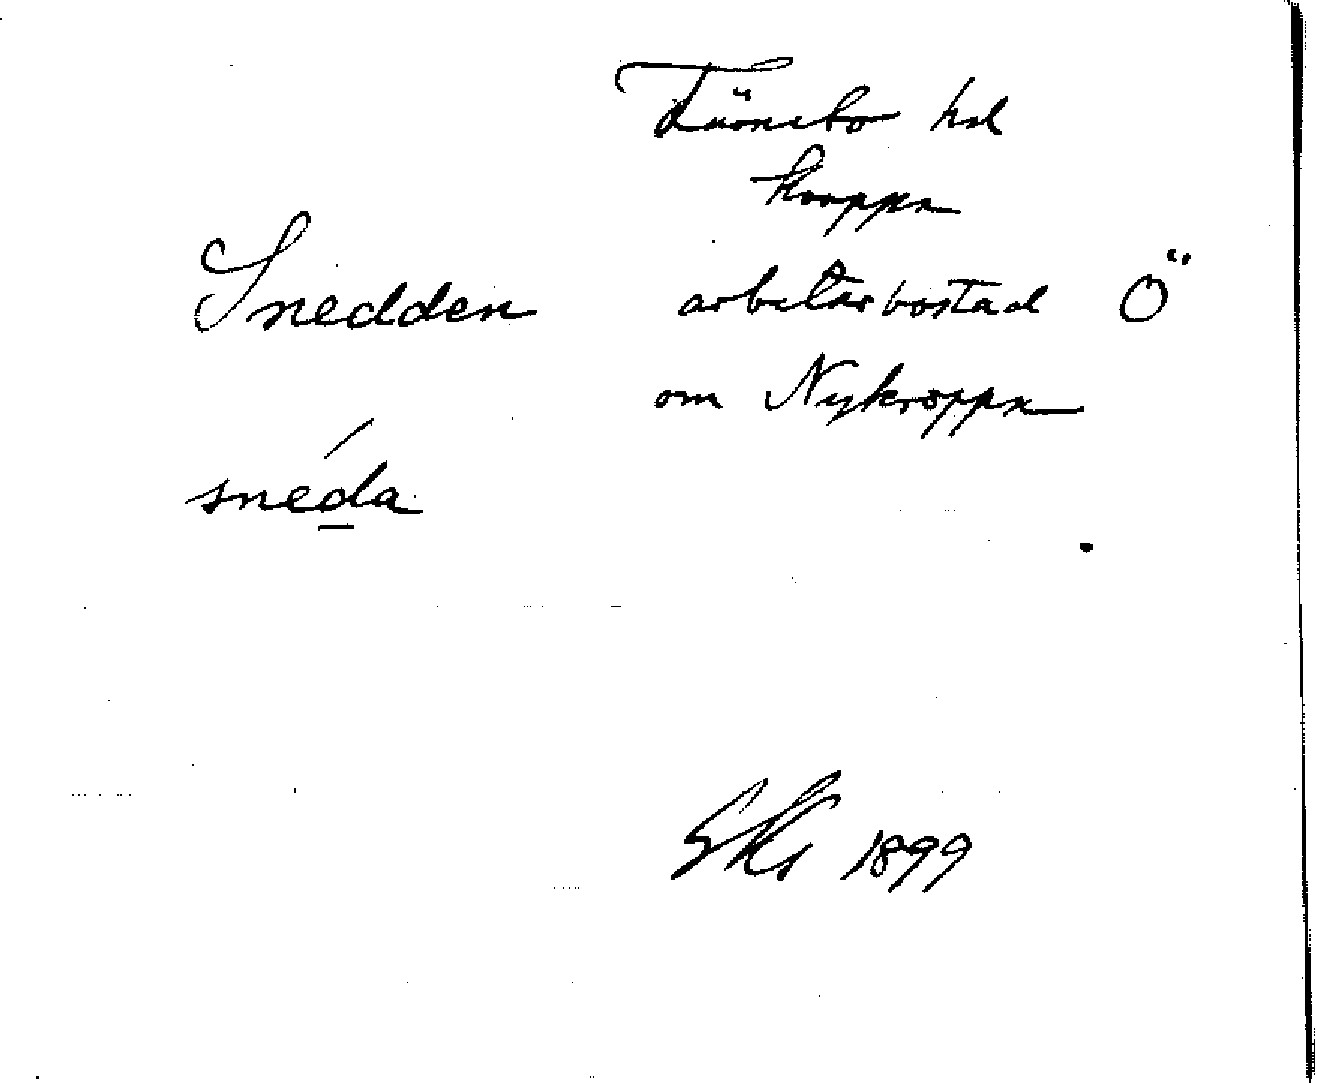 Färnebo hd
Kroppa
Snedden arbetarbostad Ö
om Nykroppa
snéda
SKs 1899